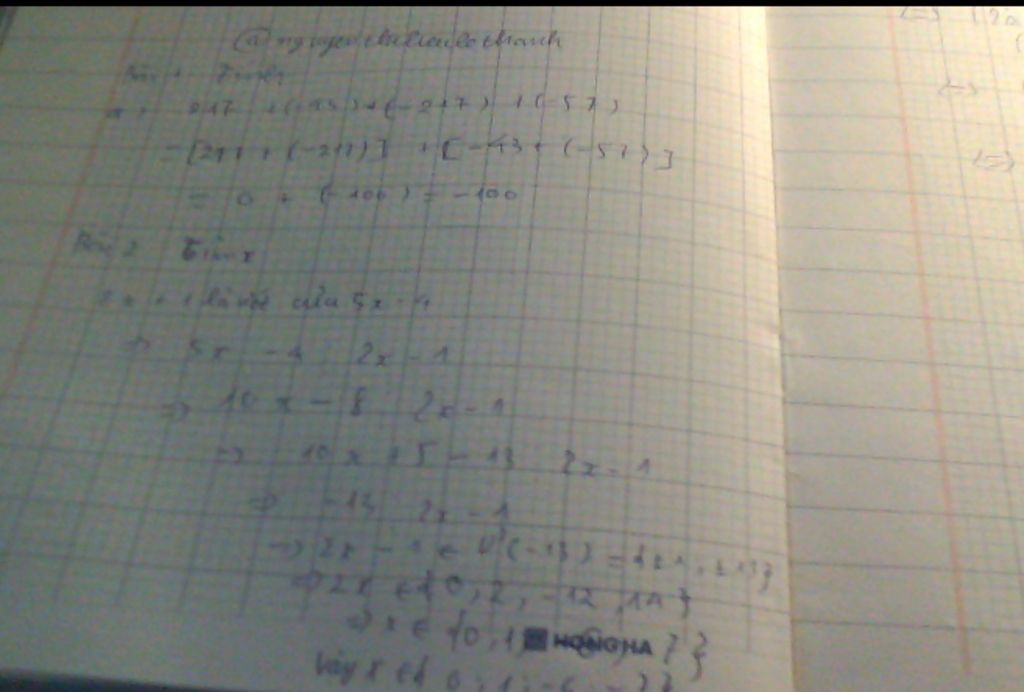 @nguyenthihieulethanh
Bài 1 Tính
217 + (-43) + (-217) + (-57)
= [217 + (-217)] + [-43 + (-57)]
= 0 + (-100) = -100
Bài 2 Tìm x
là ước của 5x - 4
=> 5x - 4 2x - 1
=> 10x - 8 2x - 1
=> 10x + 5 - 13 2x - 1
=> -13 2x - 1
=> 2x - 1 ∈ Ư(-13) = {±1, ±13}
=> 2x ∈ {0, 2, -12, 14}
=> x ∈ {0, 1, }
HONG HA
Vậy x ∈ { 0 ; 1 ; -6